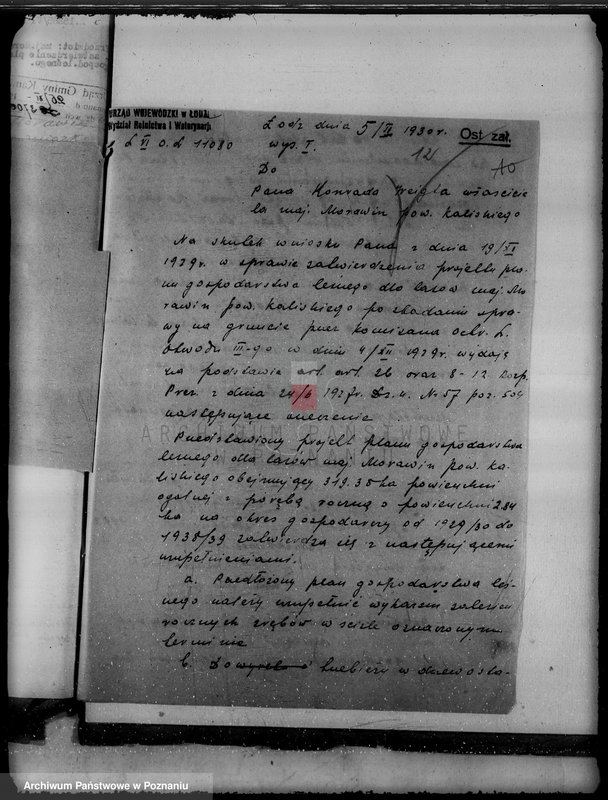 URZĄD WOJEWÓDZKI w ŁODZI
Wydział Rolnictwa i Weterynarji
Ł VI O.L 11080
Łódź dnia 5/II 1930 r.
wyś. I.
Ost zał.
12
Do
Pana Konrada Weigla właścicie
la maj. Morawin pow. Kaliskiego
Na skutek wniosku Pana z dnia 19/XI
1929r. w sprawie zatwierdzenia projektu pla-
nu gospodarstwa leśnego dla lasów maj. Mo
rawin pow. Kaliskiego po zbadaniu spra-
wy na gruncie przez komisarza ochr. L.
Obwodu III-go w dniu 4/XII 1929r. wydaję
na podstawie art. art. 26 oraz 8-12 Rozp.
Prez. z dnia 24/6 1927r. Dz. U. Nr 57 poz. 504
następujące orzeczenie
Przedstawiony projekt planu gospodarstwa
leśnego dla lasów maj. Morawin pow. Ka-
liskiego obejmujący 319.38 ha powierzchni
ogólnej z porębą roczną o powierzchni 2.84
ha na okres gospodarczy od 1929/30 do
1938/39 zatwierdza się z następującemi
uzupełnieniami.
a. Przedłożony plan gospodarstwa leś-
nego należy uzupełnić wykazem zalesień
rocznych zrębów w ściśle oznaczonym
terminie
b. Do trzebieży w drzewosta-
ARCHIWUM PAŃSTWOWE
Archiwum Państwowe w Poznaniu